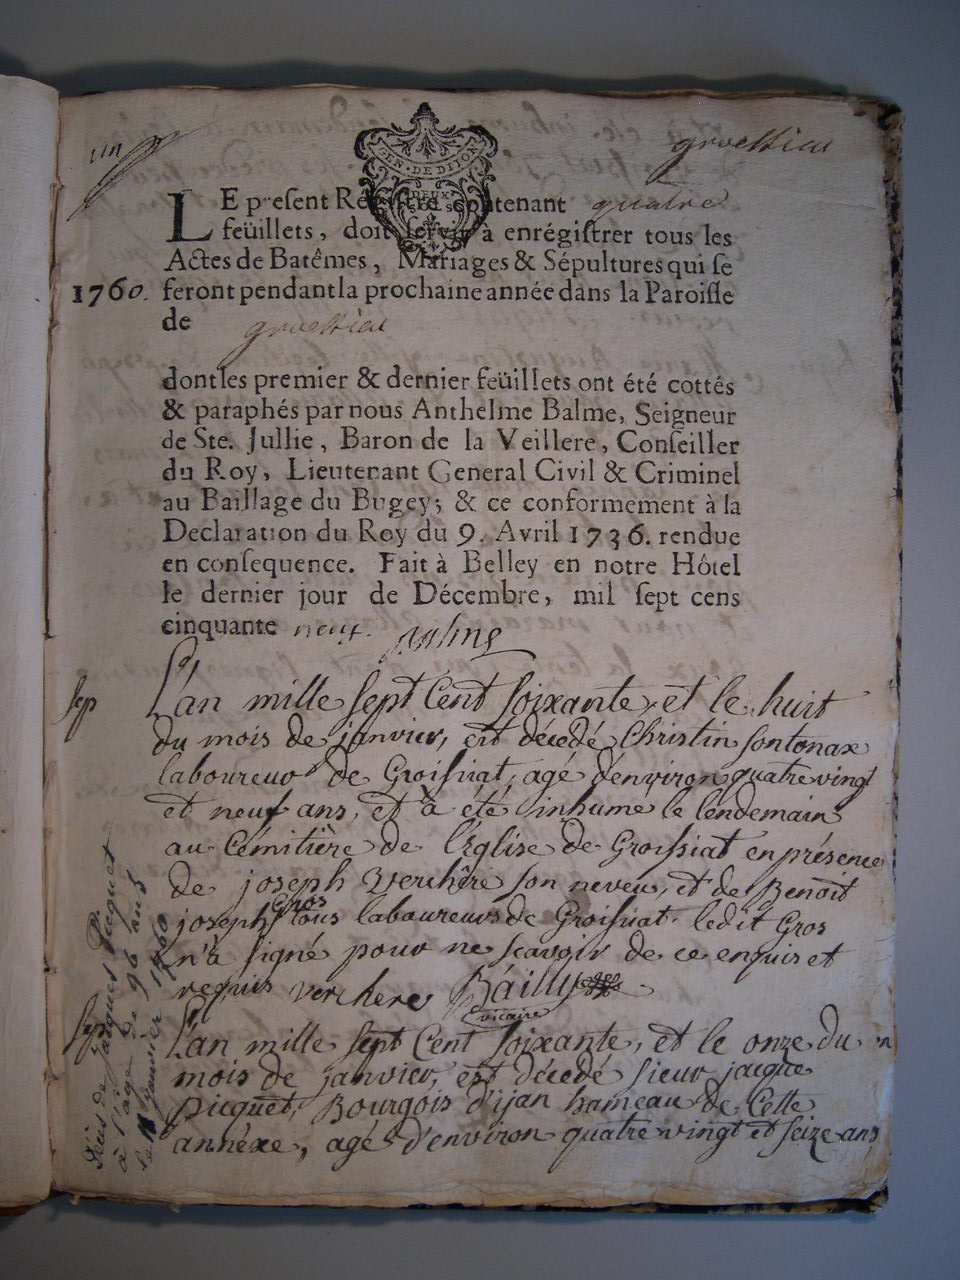 un
groissiat
GEN. DE DIJON
DEUX
LE present Régistre contenant quatre
feüillets, doit servir à enrégistrer tous les
Actes de Batêmes, Mariages & Sépultures qui se
1760. feront pendant la prochaine année dans la Paroisse
de groissiat
dont les premier & dernier feüillets ont été cottés
& paraphés par nous Anthelme Balme, Seigneur
de Ste. Jullie, Baron de la Veillere, Conseiller
du Roy, Lieutenant General Civil & Criminel
au Baillage du Bugey; & ce conformement à la
Declaration du Roy du 9. Avril 1736. rendue
en consequence. Fait à Belley en notre Hôtel
le dernier jour de Décembre, mil sept cens
cinquante neuf. Balme
Sep L'an mille sept Cent soixante, et le huit
du mois de janvier, est décédé Christin sontonax
laboureur de Groissiat, agé d'environ quatre vingt
et neuf ans, et à été inhumé le lendemain
au Cémitière de l'Eglise de Groissiat en présence
de joseph Verchère son neveu, et de Benoit
joseph Gros tous laboureurs de Groissiat. ledit Gros
n'à signé pour ne scavoir de ce enquis et
requis verchere Bailly
vicaire
Sep L'an mille sept Cent soixante, et le onze du
mois de janvier, est décédé sieur jacque
picquet, Bourgois d'ijan hameau de Cette
annéxe, agé d'environ quatre vingt et seize ans
Décès de Jacques Picquet
à l'age de 96 ans
le 11 janvier 1760